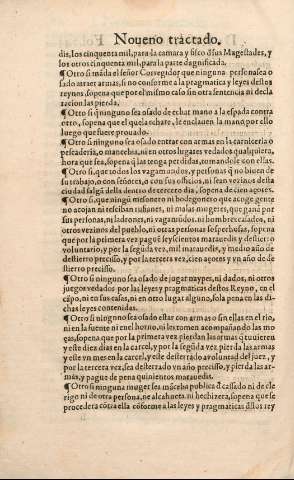 Noueno tractado.
dis, los cinquenta mil, para la camara y fisco d̃sus Magestades, y
los otros cinquenta mil, para la parte dagnificada.
¶ Otro si mãda el señor Corregidor que ninguna persona sea o
sado atraer armas, si no conforme a la pragmatica y leyes destos
reynos, sopena que por el mismo caso sin otra sentencia ni decla
racion las pierda.
¶ Otro si q̃ninguno sea osado de echar mano a la espada contra
otro, sopena que el quela echare, le enclauen la mano por ello
luego que fuere prouado.
¶ Otro si ninguno sea osado entrar con armas en la carniceria o
pescaderia, o mancebia, ni en otros lugares vedados qualquiera
hora que sea, sopena q̃ las tenga perdidas, tomandole con ellas.
¶ Otro si, que todos los vagamundos, y personas q̃ no biuen de
su trabajo, o con señores, o con sus officios, ni sean vezinos desta
ciudad salgã della dentro de tercero dia, sopena de cien açotes.
¶ Otro si, que ningũ mesonero ni bodegonero que acoge gente
no acojan ni resciban rufianes, ni malas mugeres, que ganẽ por
sus personas, ni ladrones, ni vagamũdos, ni hombres casados, ni
otros vezinos del pueblo, ni otras personas sospechosas, sopena
que por la primera vez pague seyscientos marauedis y destierro
voluntario, y por la segũda vez, mil marauedis, y medio año de
destierro preciso, y por la tercera vez, cien açotes y vn año de de
stierro preciso.
¶ Otro si ninguno sea osado de jugar naypes, ni dados, ni otros
juegos vedados por las leyes y pragmaticas destos Reyno, en el
cãpo, ni en sus casas, ni en otro lugar alguno, sola pena en las di-
chas leyes contenidas.
¶ Otro si ninguno sea osado estar con armas o sin ellas en el rio,
ni en la fuente ni en el horno, ni les tomen acompañando las mo
ças, sopena que por la primera vez pierdan las armas q̃ tuuieren
y este diez dias en la carcel, y por la segũda vez, pierda las armas
y este vn mes en la carcel, y elle desterrado a voluntad del juez, y
por la tercera vez, sea desterrado vn año preciso, y pierda las ar-
mas, y pague de pena quinientos marauedis.
¶ Otro si ninguna muger sea mãceba publica d̃ cassado ni de cle
rigo ni de otra persona, ne alcahueta, ni hechizera, sopena que se
procedera cõtra ella cõforme a las leyes y pragmaticas d̃stos rey